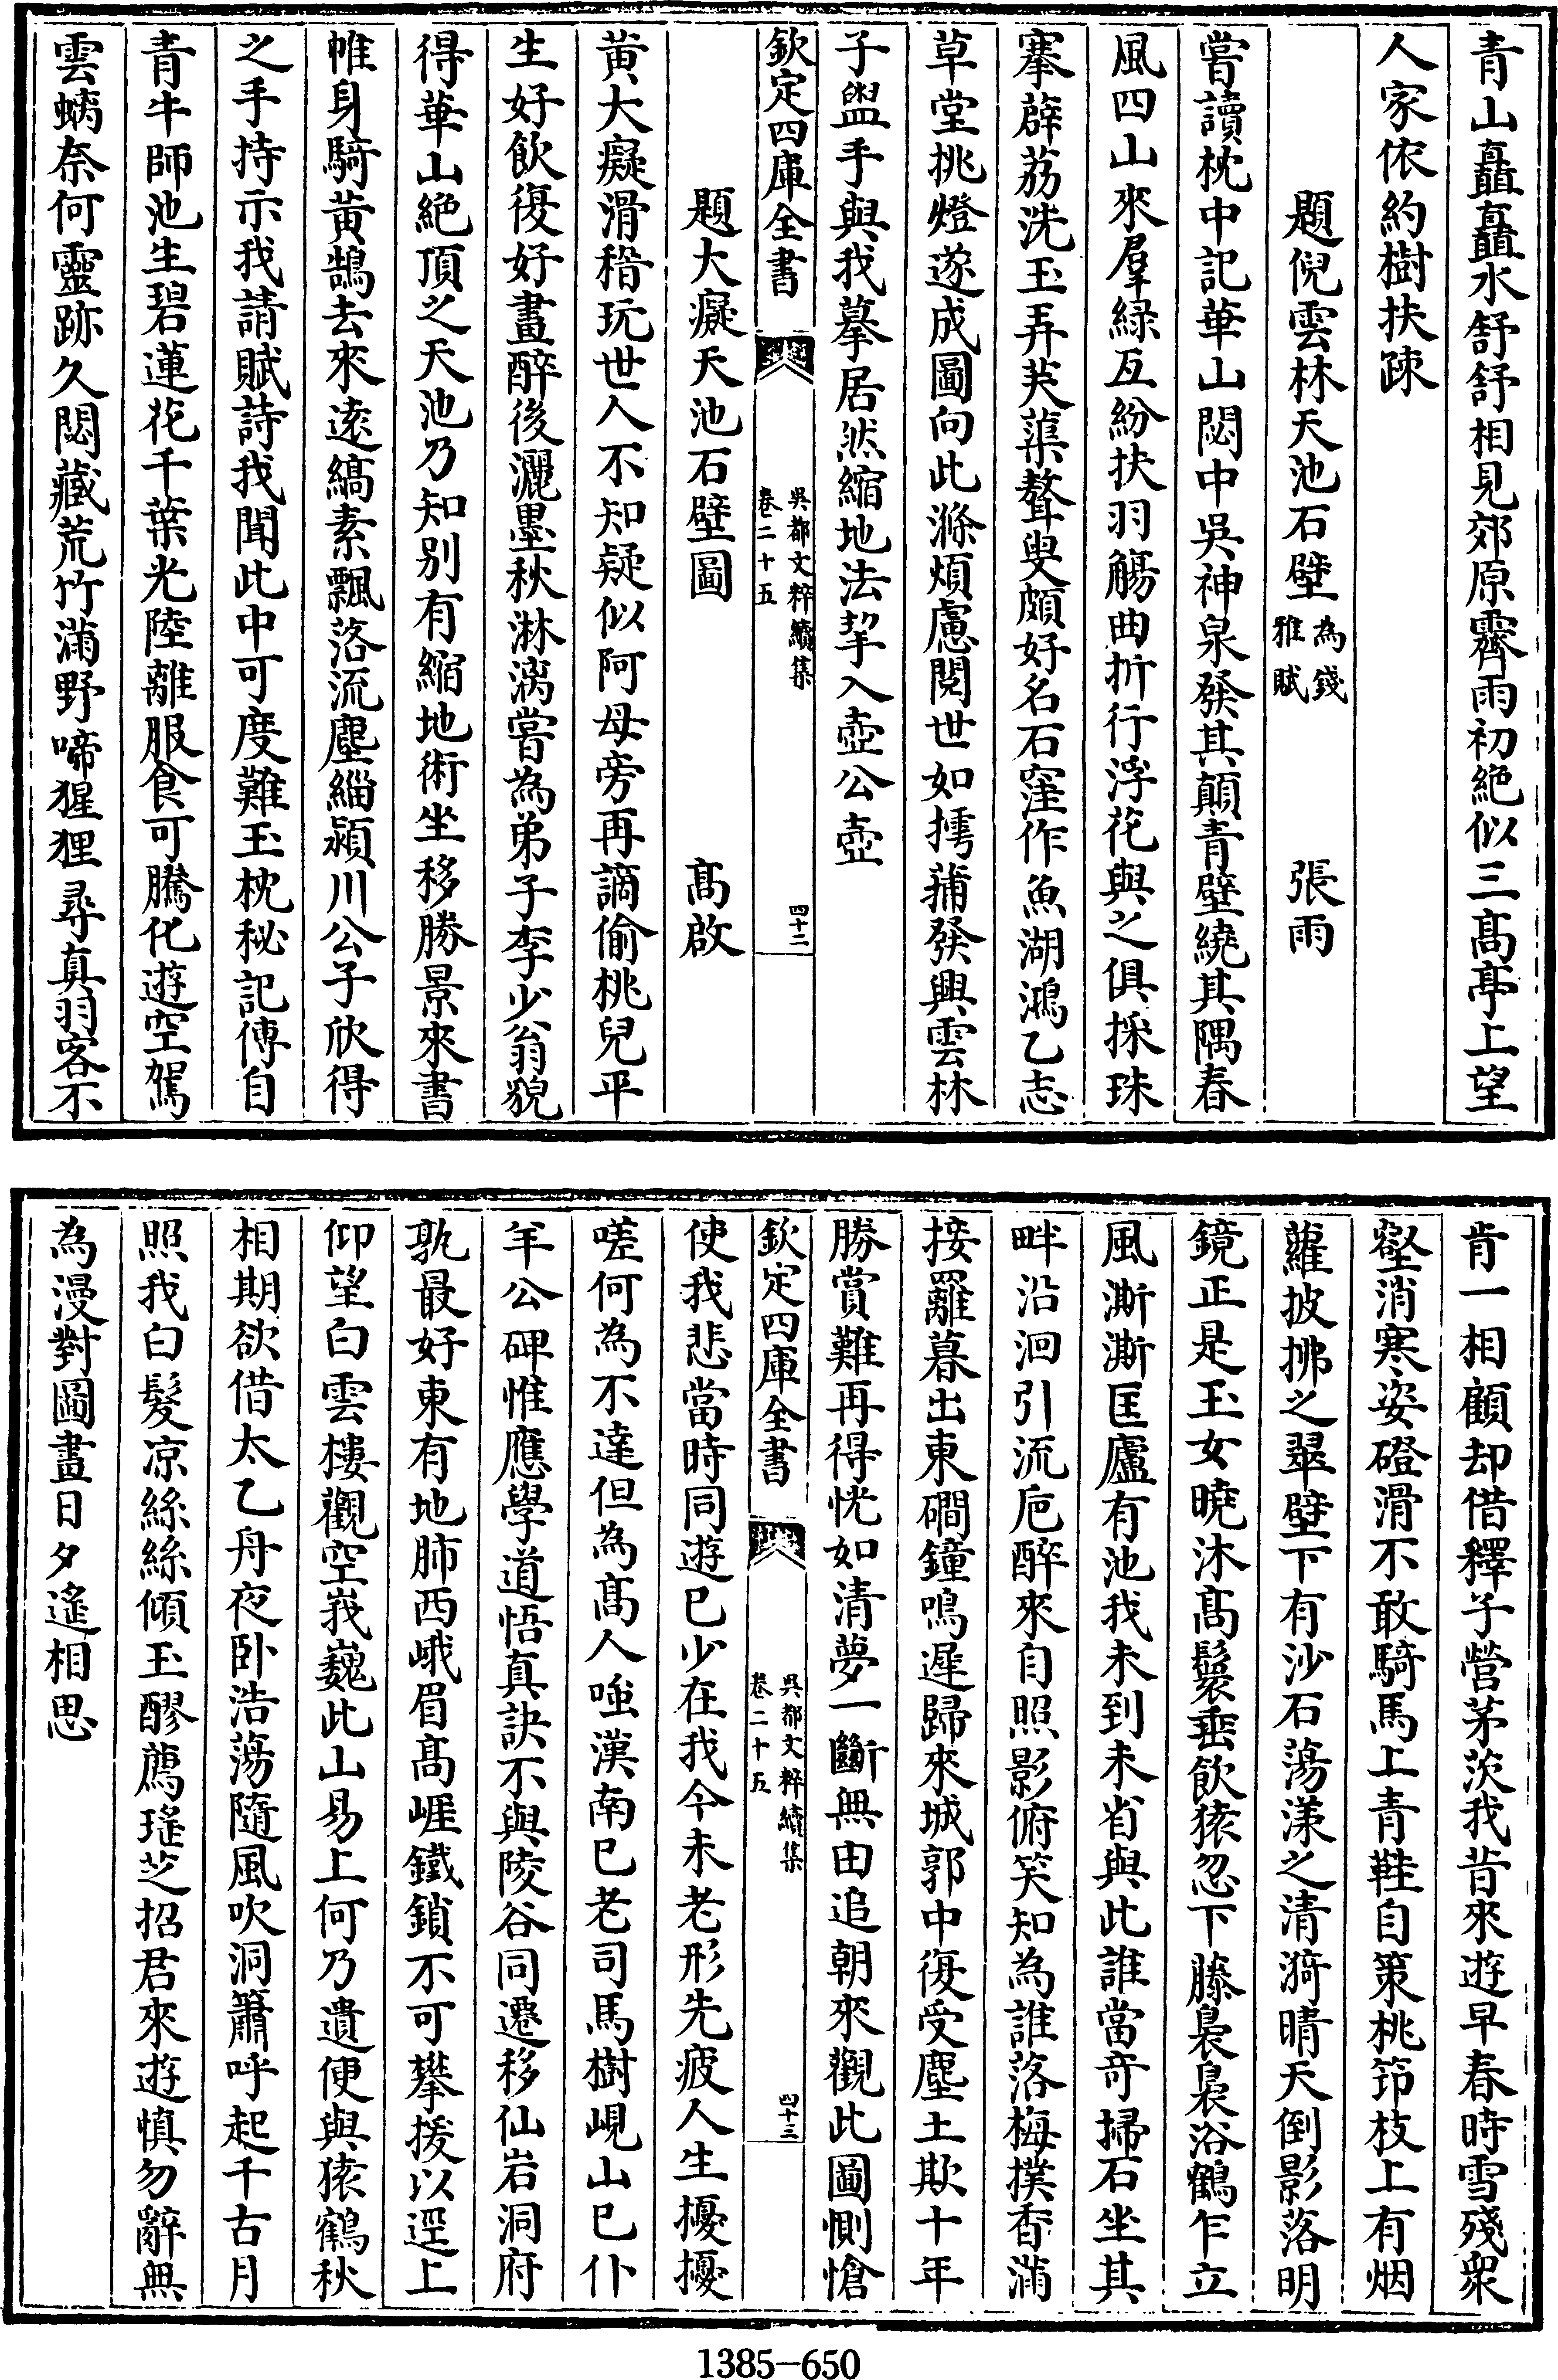 青山矗矗水舒舒相見郊原霽雨初絕似三髙亭上望
人家依約樹扶疎
題倪雲林天池石壁為錢雅賦 張雨
嘗讀枕中記華山閟中吳神泉發其顛青壁繞其隅春
風四山來羣緑互紛扶羽觴曲折行浮花與之俱採珠
搴薜荔洗玉弄芙蕖聱叟頗好名石窪作魚湖鴻乙志
草堂挑燈遂成圖向此滌煩慮閱世如摴蒱發興雲林
子盥手與我摹居然縮地法挈入壺公壺
欽定四庫全書 吳都文粹續集 卷二十五 四十二
題大癡天池石壁圖 髙啟
黄大癡滑稽玩世人不知疑似阿母旁再謫偷桃兒平
生好飲復好畫醉後灑墨秋淋漓嘗為弟子李少翁貌
得華山絕頂之天池乃知別有縮地術坐移勝景來書
帷身騎黄鵠去來逺縞素飄落流塵緇潁川公子欣得
之手持示我請賦詩我聞此中可度難玉枕秘記傳自
青牛師池生碧蓮花千葉光陸離服食可騰化遊空駕
雲螭奈何靈跡久閟藏荒竹滿野啼猩狸尋真羽客不
肯一相顧却借釋子營茅茨我昔來遊早春時雪殘衆
壑消寒姿磴滑不敢騎馬上青鞋自策桃笻枝上有烟
蘿披拂之翠壁下有沙石蕩漾之清漪晴天倒影落明
鏡正是玉女曉沐髙鬟垂飲猿忽下滕裊裊浴鶴乍立
風澌澌匡廬有池我未到未省與此誰當竒掃石坐其
畔沿洄引流巵醉來自照影俯笑知為誰落梅撲香滿
接䍦暮出東磵鐘鳴遲歸來城郭中復受塵土欺十年
勝賞難再得恍如清夢一斷無由追朝來觀此圖惻愴
欽定四庫全書 吳都文粹續集 卷二十五 四十三
使我悲當時同遊已少在我今未老形先疲人生擾擾
嗟何為不達但為髙人嗤漢南已老司馬樹峴山已仆
羊公碑惟應學道悟真訣不與陵谷同遷移仙岩洞府
孰最好東有地肺西峨眉髙崕鐵鎖不可攀援以逕上
仰望白雲樓觀空峩巍此山易上何乃遺便與猿鶴秋
相期欲借太乙舟夜卧浩蕩隨風吹洞簫呼起千古月
照我白髮凉絲絲傾玉醪薦瑤芝招君來遊慎勿辭無
為漫對圖畫日夕遙相思
1385-650